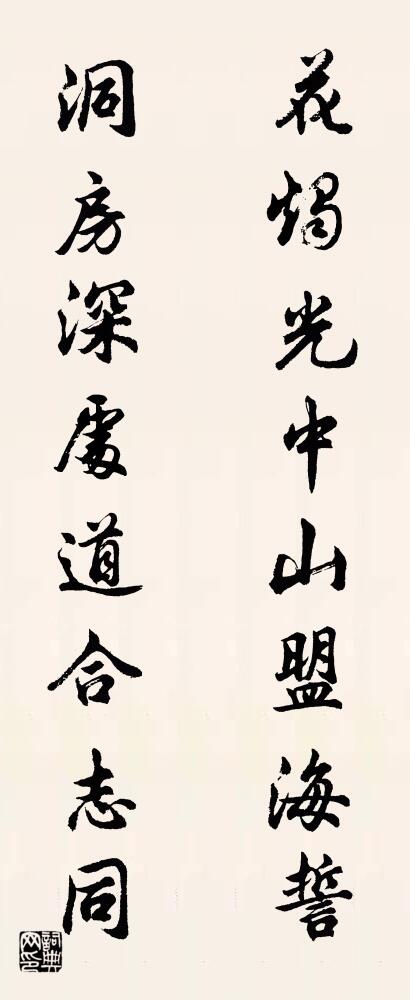 花燭光中山盟海誓
洞房深處道合志同
詞典網印